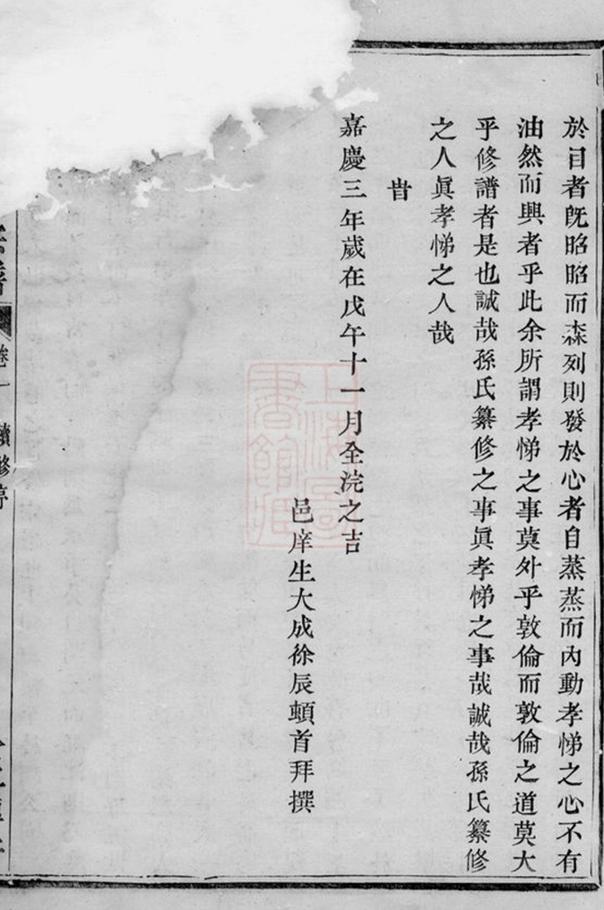 於目者旣昭昭而森列則發於心者自蒸蒸而內動孝悌之心不有
油然而興者乎此余所謂孝悌之事莫外乎敦倫而敦倫之道莫大
乎修譜者是也誠哉孫氏纂修之事眞孝悌之事哉誠哉孫氏纂修
之人眞孝悌之人哉
旹
嘉慶三年歲在戊午十一月全浣之吉
邑庠生大成徐辰頓首拜撰
卷一
續修序
上海圖書館藏